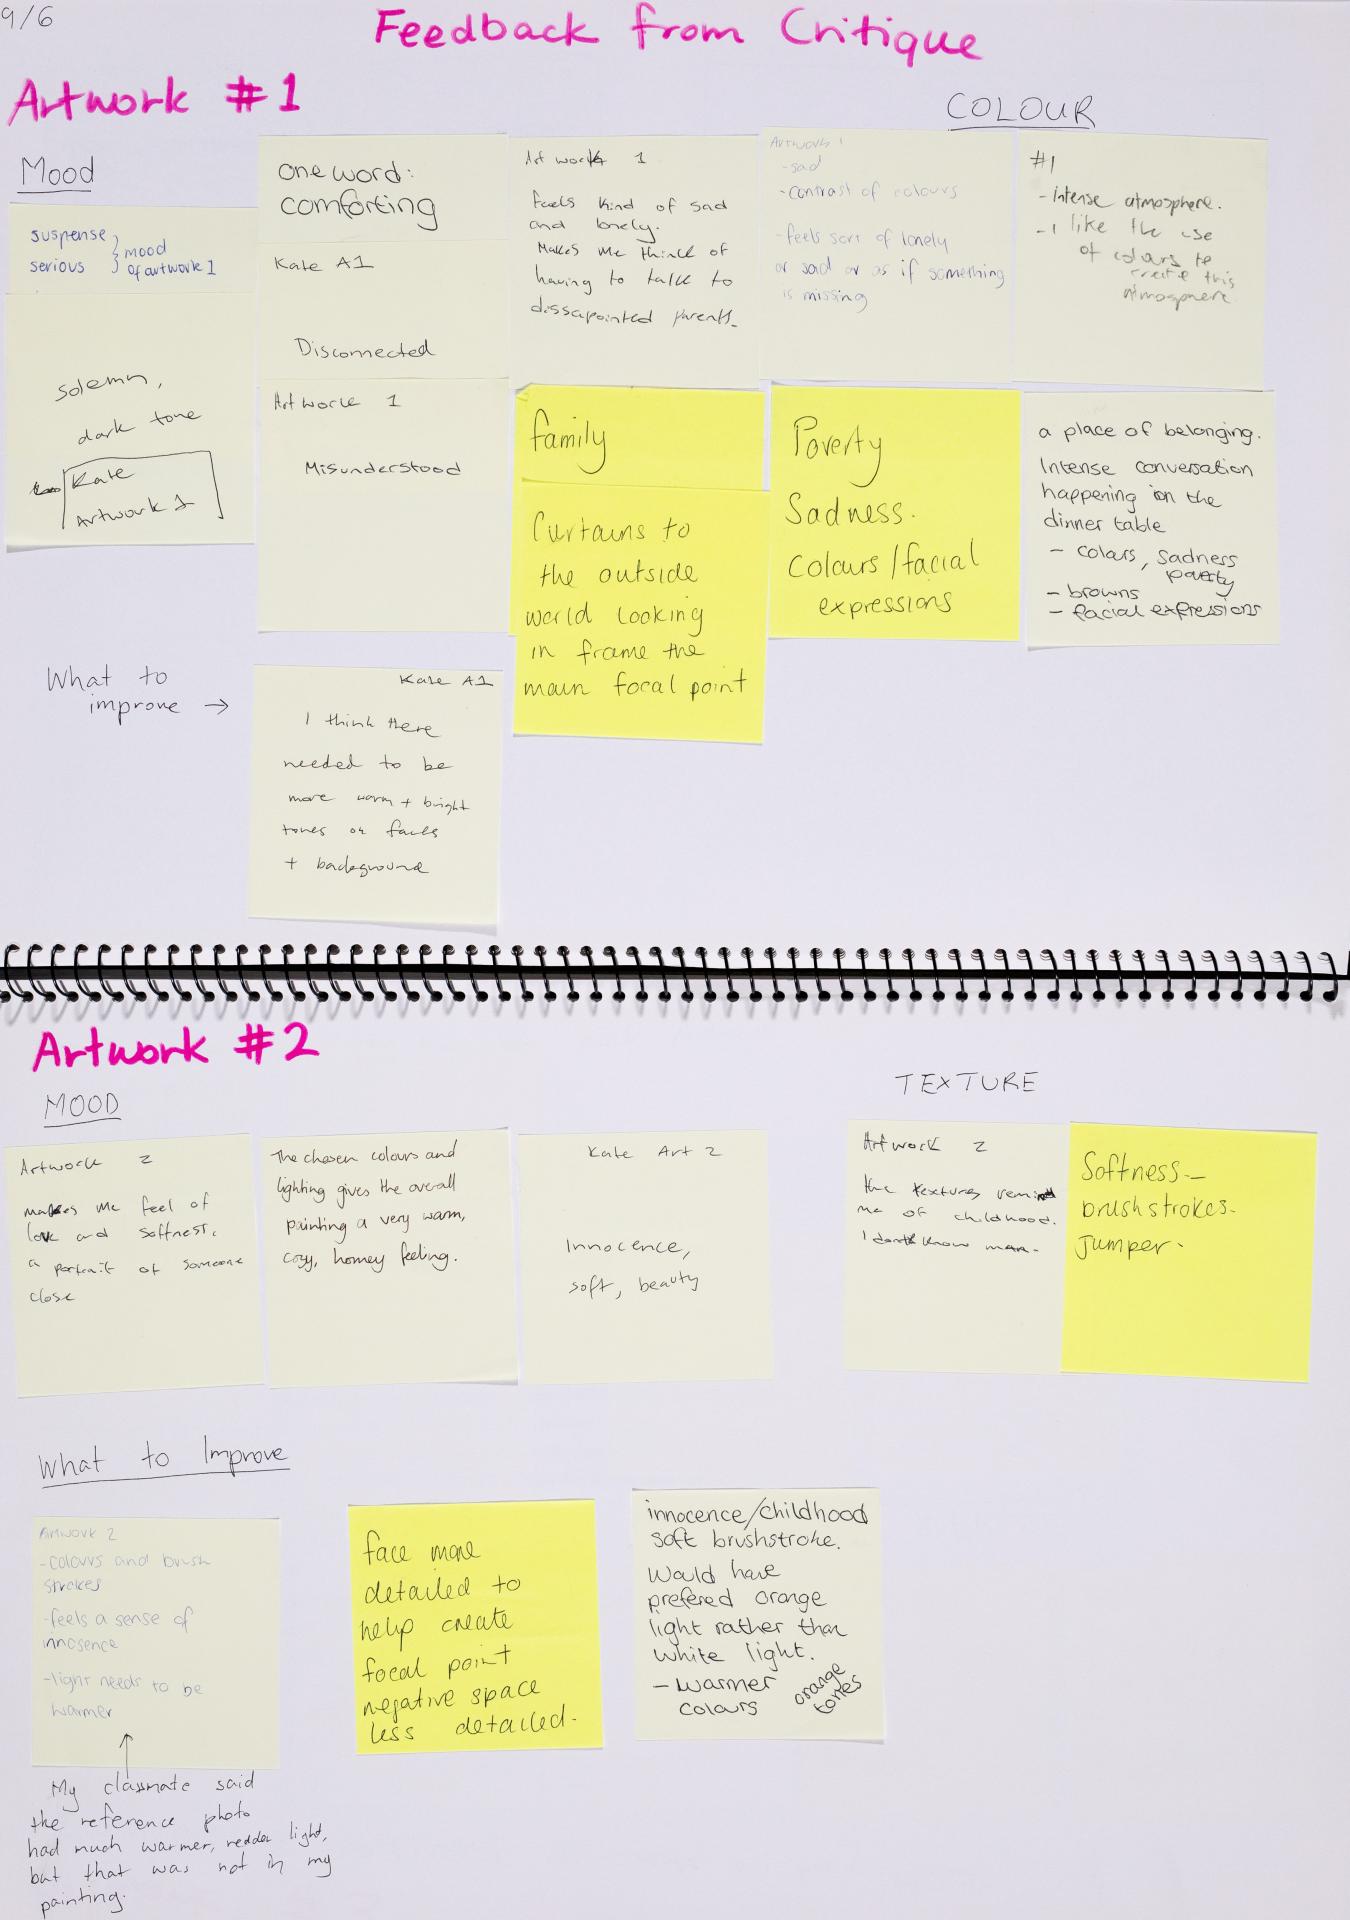 9/6
Feedback from Critique
Artwork #1
Mood
suspense
serious
mood
of artwork 1
solemn,
dark tone
Kate
Artwork 1
one word:
comforting
Kate A1
Disconnected
Artwork 1
Misunderstood
Artwork 1
feels kind of sad
and lonely.
Makes me think of
having to talk to
dissapointed parents.
family
Curtains to
the outside
world looking
in frame the
main focal point
COLOUR
Artwork 1
-sad
-contrast of colours
-feels sort of lonely
or sad or as if something
is missing
#1
- intense atmosphere.
- I like the use
of colours to
create this
atmosphere
Poverty
Sadness.
Colours/facial
expressions
a place of belonging.
Intense conversation
happening on the
dinner table
- colours, sadness
poverty
- browns
- facial expressions
What to
improve →
Kate A1
I think there
needed to be
more warm + bright
tones on faces
+ background
Artwork #2
MOOD
Artwork 2
makes me feel of
love and softness,
a portrait of someone
close
The chosen colours and
lighting gives the overall
painting a very warm,
cosy, homey feeling.
Kate Art 2
Innocence,
soft, beauty
TEXTURE
Artwork 2
the textures remind
me of childhood.
I dont know man.
Softness -
brushstrokes.
Jumper.
What to Improve
Artwork 2
-colours and brush
strokes
-feels a sense of
innosence
-light needs to be
warmer
My classmate said
the reference photo
had much warmer, redder light,
but that was not in my
painting.
face more
detailed to
help create
focal point
negative space
less detailed.
innocence/childhood
soft brushstroke.
Would have
prefered orange
light rather than
white light.
- warmer
colours
orange
tones